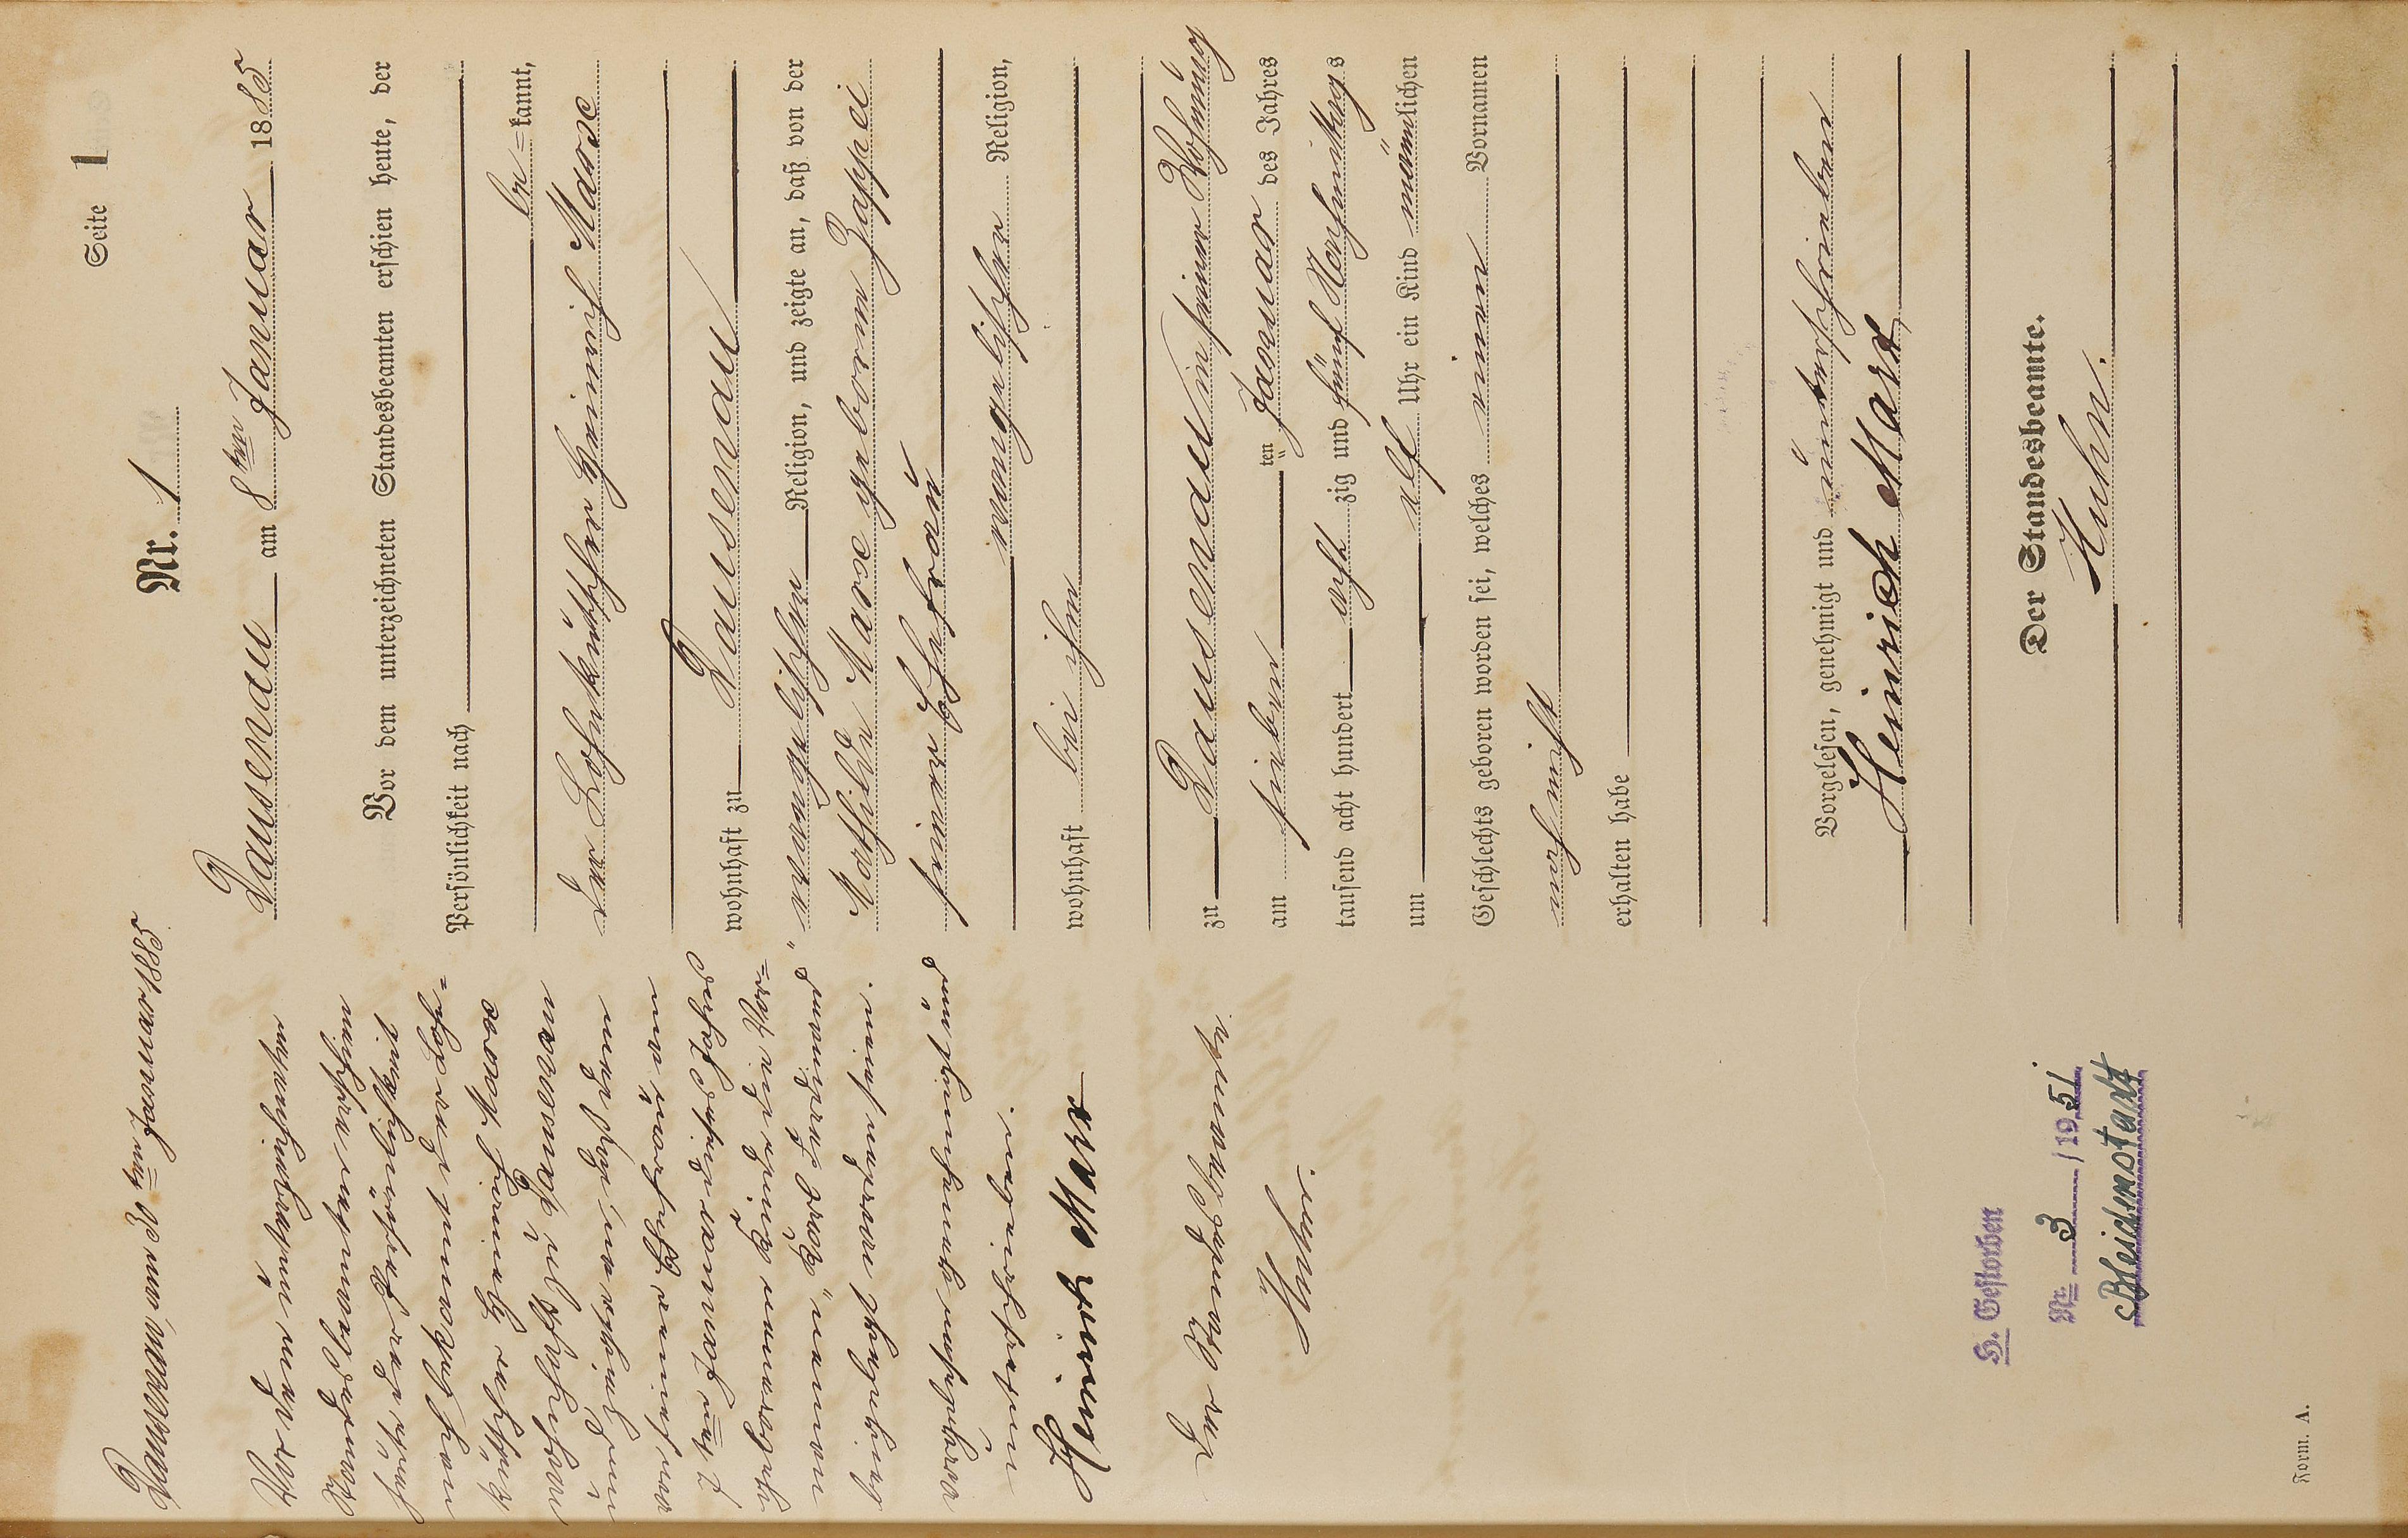 Seite 1
Nr. 1
Dausenau am 8ten Januar 1885
Vor dem unterzeichneten Standesbeamten erschien heute, der
Persönlichkeit nach
be=kannt,
der Heinrich Marx
wohnhaft zu Dausenau
evangelischer Religion, und zeigte an, daß von der
Mathilde Marx geborenen Zappei
seiner Ehefrau
evangelischer Religion,
wohnhaft bei ihm
zu Dausenau in seiner Wohnung
am sieben ten Januar des Jahres
tausend acht hundert acht zig und fünf Nachmittags
um elf Uhr ein Kind männlichen
Geschlechts geboren worden sei, welches einen Vornamen
noch nicht
erhalten habe
Vorgelesen, genehmigt und unterschrieben
Heinrich Marx
Der Standesbeamte.
Huhn.
Dausenau, am 30ten Januar 1885
Vor dem unterzeichneten
Standesbeamten erschien
heute der Persönlichkeit
nach bekannt der
Heinrich Marx
wohnhaft zu Dausenau
und zeigte an, daß dem
von seiner Ehefrau am
7ten Januar dieses Jahres
geborenen Kinde die Vor=
namen "Karl Ferdinand"
beigelegt worden seien.
Vorgelesen genehmigt und
unterschrieben.
Heinrich Marx
Der Standesbeamte.
Huhn.
H. Gestorben
Nr. 3 /1951
Bleidenstadt
Form. A.